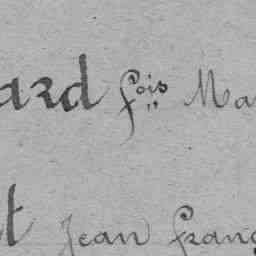 ard fois Ma
t Jean franç